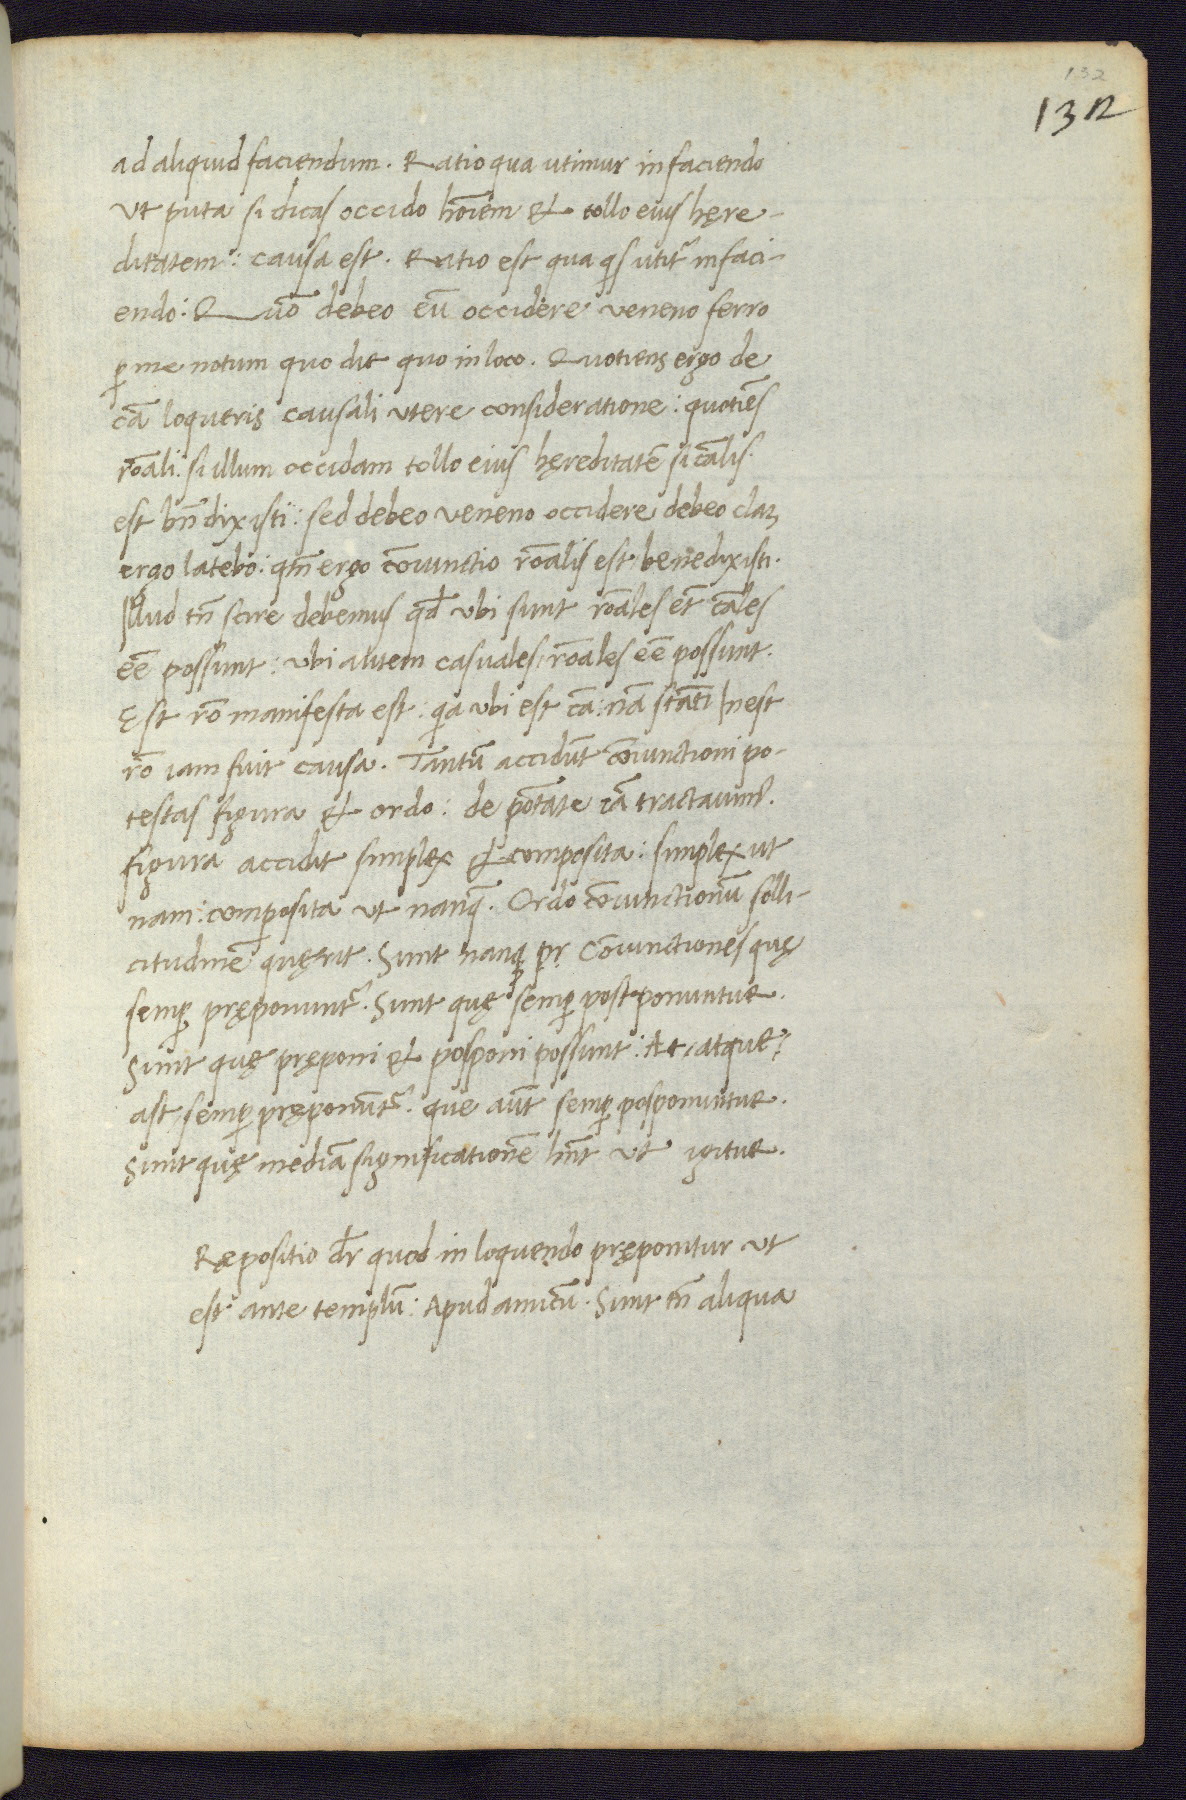 132
132
ad aliquid faciendum. Ratio qua utimur in faciendo
Ut puta si dicas occido hoīem & tollo eius hęre-
ditatem: causa est. Ratio est qua qͥs utit᷑ in faci-
endo: Quō debeo eū occidere veneno ferro
ꝑ me notum quo die quo in loco. Quotiens ergo de
cā loqueris causali utere consideratione: quotiēs
rōali. si illum occidam tollo eius hęreditatē si cālis.
est bn̄ dixisti: sed debeo veneno occidere debeo claꝫ
ergo latebo: qm̄ ergo cōiunctio rōalis est benedixisti.
Illud tn̄ scire debemus qd̄ ubi sunt rōales et cāles
eē possunt: ubi autem casuales, rōales eē possunt.
Est rō manifesta est: qͥa ubi est cā: nā statī
rō iam fuit causa. Tantū accidūt cōiunctioni po-
testas figura & ordo: de ptāte iā tractauim᷒.
figura accidit simplex & composita: simplex ut
nam: composita ut nanq᷒. Ordo cōiunctionū solli-
citudinē quęrit. Sunt nanq᷒ pr Cōiunctiones quę
semꝑ pręponunt᷑. Sunt quę semꝑ postponuntur.
Sunt quę pręponi & posponi possunt: At, atque,
ast, semꝑ pręponūt᷑. que aūt semꝑ posponuntur.
Sunt quę mediā significationē hn̄t ut igitur.
Rępositio dr̄ quod in loquendo pręponitur ut
est ante templū: Apud amicū. Sunt tn̄ aliqua